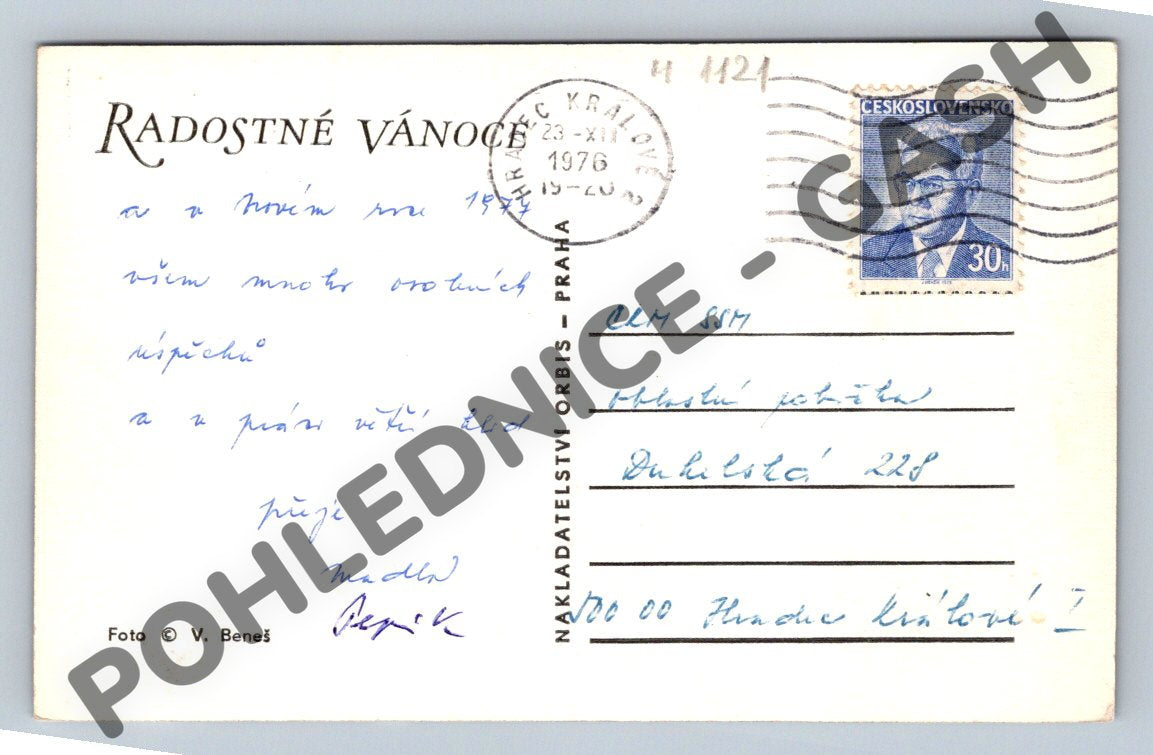 M 1121
RADOSTNÉ VÁNOCE
HRADEC KRÁLOVÉ 2
23.-XII
1976
19-20
ČESKOSLOVENSKO
30h
a v Novém roce 1977
všem mnoho osobních
úspěchů
a v práci větší klid
přeje
Madla
Pepík
Foto © V. Beneš
NAKLADATELSTVÍ ORBIS – PRAHA
CKM SSM
oblastní pobočka
Dukelská 228
500 00 Hradec Králové I
POHLEDNICE - GASH